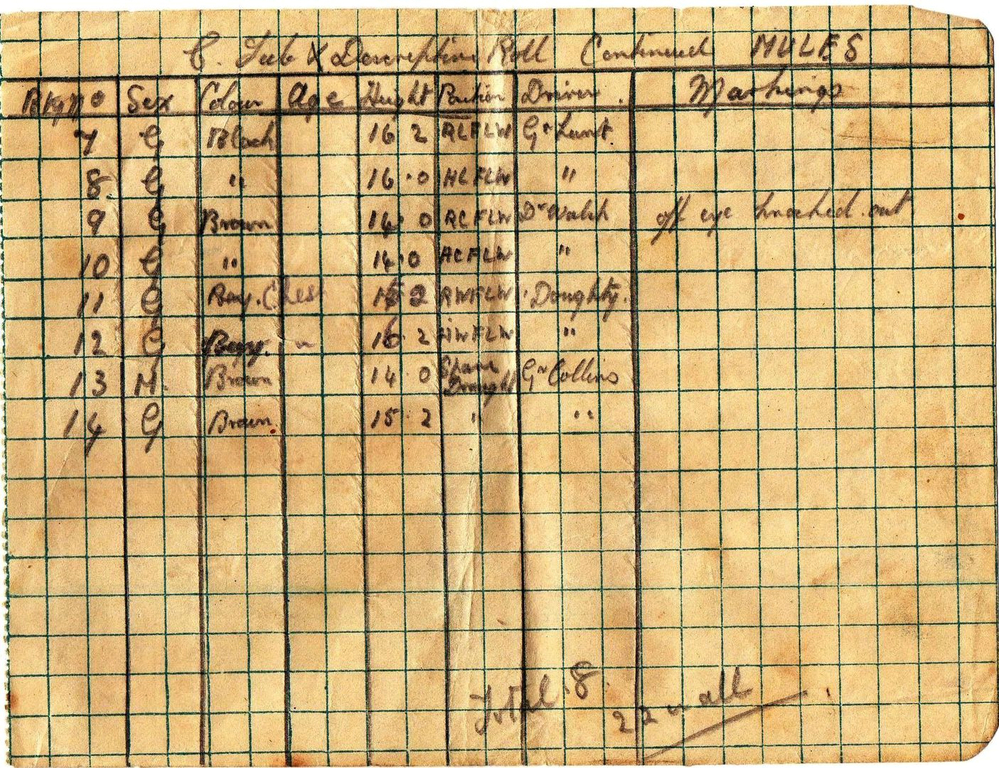 C. Sub X Descriptive Roll Continued MULES
Bty No Sex Colour Age Height Position Driver. Markings
7 G Black 16 2 RLFLW Gr Lunt
8 G " 16.0 HLFLW "
9 G Brown 14.0 RCFLW Dr Walsh off eye knocked out
10 G " 14.0 HCFLW "
11 G Bay. Chest 15 2 RWFLW Doughty.
12 G Bay. " 16.2 HWFLW "
13 M. Brown 14.0 Spare Draught Gr Collins
14 G Brown 15.2 " "
Total 8.
22 in all